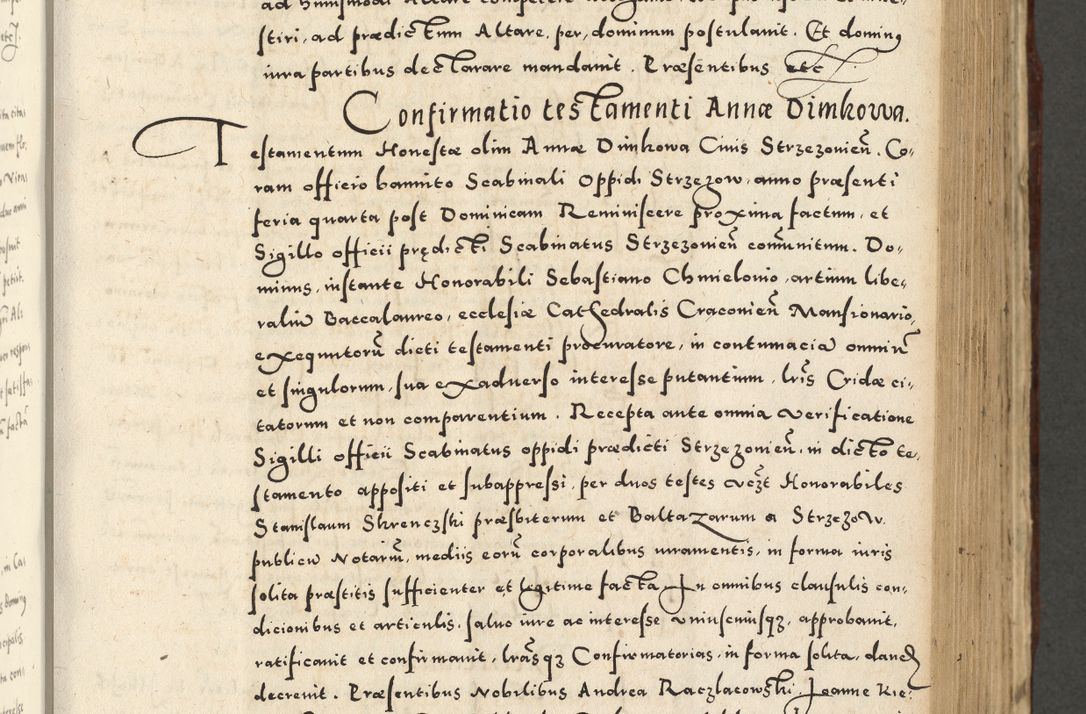 stiri, ad prædictum Altare, per, dominum postulauit. Et dominus
iura partibus declarare mandauit. Præsentibus etc
Confirmatio testamenti Annæ Dimkowa.
Testamentum Honestæ olim Annæ Dimkowa Ciuis Strzezovien̄. Co-
ram officio bannito Scabinali Oppidi Strzezow, anno præsenti
feria quarta post Dominicam Reminiscere proxima factum, et
Sigillo officii prędicti Scabinatus Strzezovien̄ com̄unitum. Do-
minus, instante Honorabili Sebastiano Chmielouio, artium libe-
raliū Baccalaureo, ecclesiæ Cathedralis Cracouien̄ Mansionario,
exequutorū dicti testamenti procuratore, in contumaciā omniū
et singulorum, sua exaduerso interesse putantium, lr̄is Cridæ ci-
tatorum et non comparentium. Recepta ante omnia verificatione
Sigilli officii Scabinatus oppidi prædicti Strzezovien̄, in dicto te-
stamento appositi et subappressi, per duos testes vcz̄t Honorabiles
Stanislaum Skrenczski præsbiterum et Baltazarum a Strzezow
publicū Notariū, mediis eorū corporalibus iuramentis, in forma iuris
solita præstitis sufficienter et legitime facta In omnibus clausulis con-
dicionibus et articulis, saluo iure ac interesse vniuscuiusqꝫ, approbauit,
ratificauit et confirmauit, lr̄asqꝫ Confirmatorias, in forma solita, dandas
decreuit. Præsentibus Nobilibus Andrea Raczlacowski, Joanne Kie-